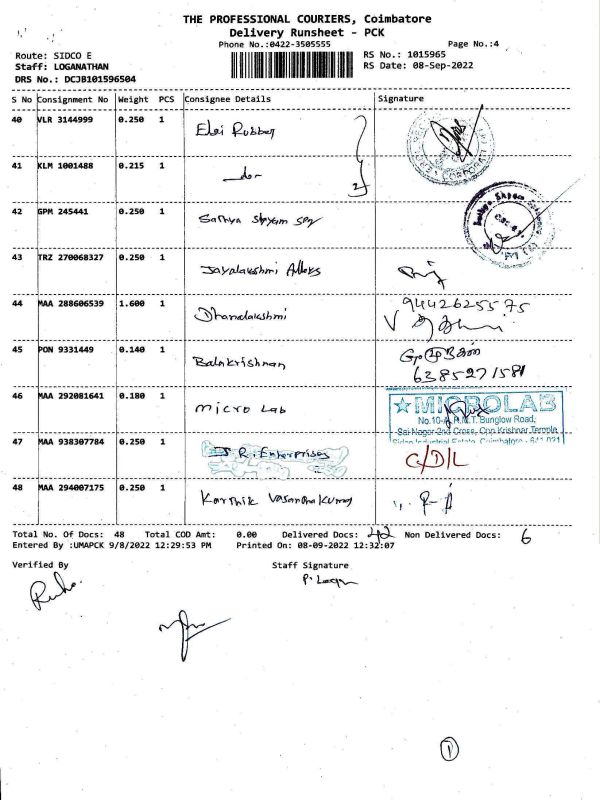 THE PROFESSIONAL COURIERS, Coimbatore
Delivery Runsheet - PCK
Phone No.:0422-3505555
Page No.:4
Route: SIDCO E
RS No.: 1015965
Staff: LOGANATHAN
RS Date: 08-Sep-2022
DRS No.: DCJB101596504
S No Consignment No Weight PCS Consignee Details Signature
40 VLR 3144999 0.250 1 Elgi Rubber
41 KLM 1001488 0.215 1 -do- 2
42 GPM 245441 0.250 1 Sathya Shyam
43 TRZ 270068327 0.250 1 Jayalakshmi Alloys
44 MAA 288606539 1.600 1 Dhanalakshmi 9442625575
45 PON 9331449 0.140 1 Balakrishnan
6385271581
46 MAA 292081641 0.180 1 micro Lab
MICROLAB
Bunglow Road,
Sai Nagar 2nd Cross, Opp Krishnar Temple
Sidco Industrial Estate, Coimbatore - 641 021
47 MAA 938307784 0.250 1 J.R. Enterprises C/D/L
48 MAA 294007175 0.250 1 Karthik Vasanthakumar
Total No. Of Docs: 48 Total COD Amt: 0.00 Delivered Docs: 42 Non Delivered Docs: 6
Entered By :UMAPCK 9/8/2022 12:29:53 PM Printed On: 08-09-2022 12:32:07
Verified By Staff Signature
1